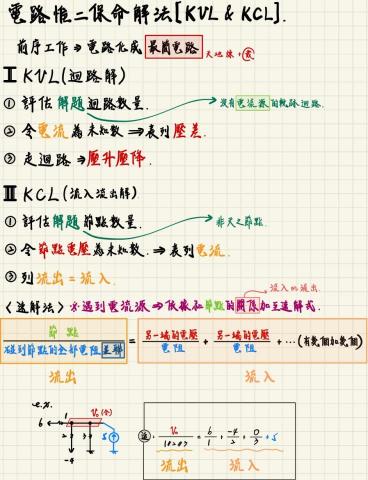 電路惟二保命解法[KVL & KCL].
前序工作 ⇒ 電路化成 最簡電路
Ⅱ KVL(迴路解)
① 評估解題迴路數量. → 沒有電流源的軌跡迴路.
② 令電流為未知數 ⇒ 表列壓差.
③ 走迴路 ⇒ 壓升壓降.
Ⅲ KCL(流入流出解)
① 評估解題節點數量. → 非天之節點.
② 令節點電壓為未知數. ⇒ 表列電流.
③ 列流出 = 流入.
流入or流出.
〈速解法〉※遇到電流源 ⇒ 依據和節點的關係加至速解式.
節點 / 碰到節點的全部電阻並聯 = 另一端的電壓 / 電阻 + 另一端的電壓 / 電阻 + … (有幾個加幾個)
流出 流入
e.x.
6 1 V₀(令)
2 3 5
-4
V₀ / 1∥2∥3 = 6/1 + -4/2 + 0/3 + 5
流出 流入